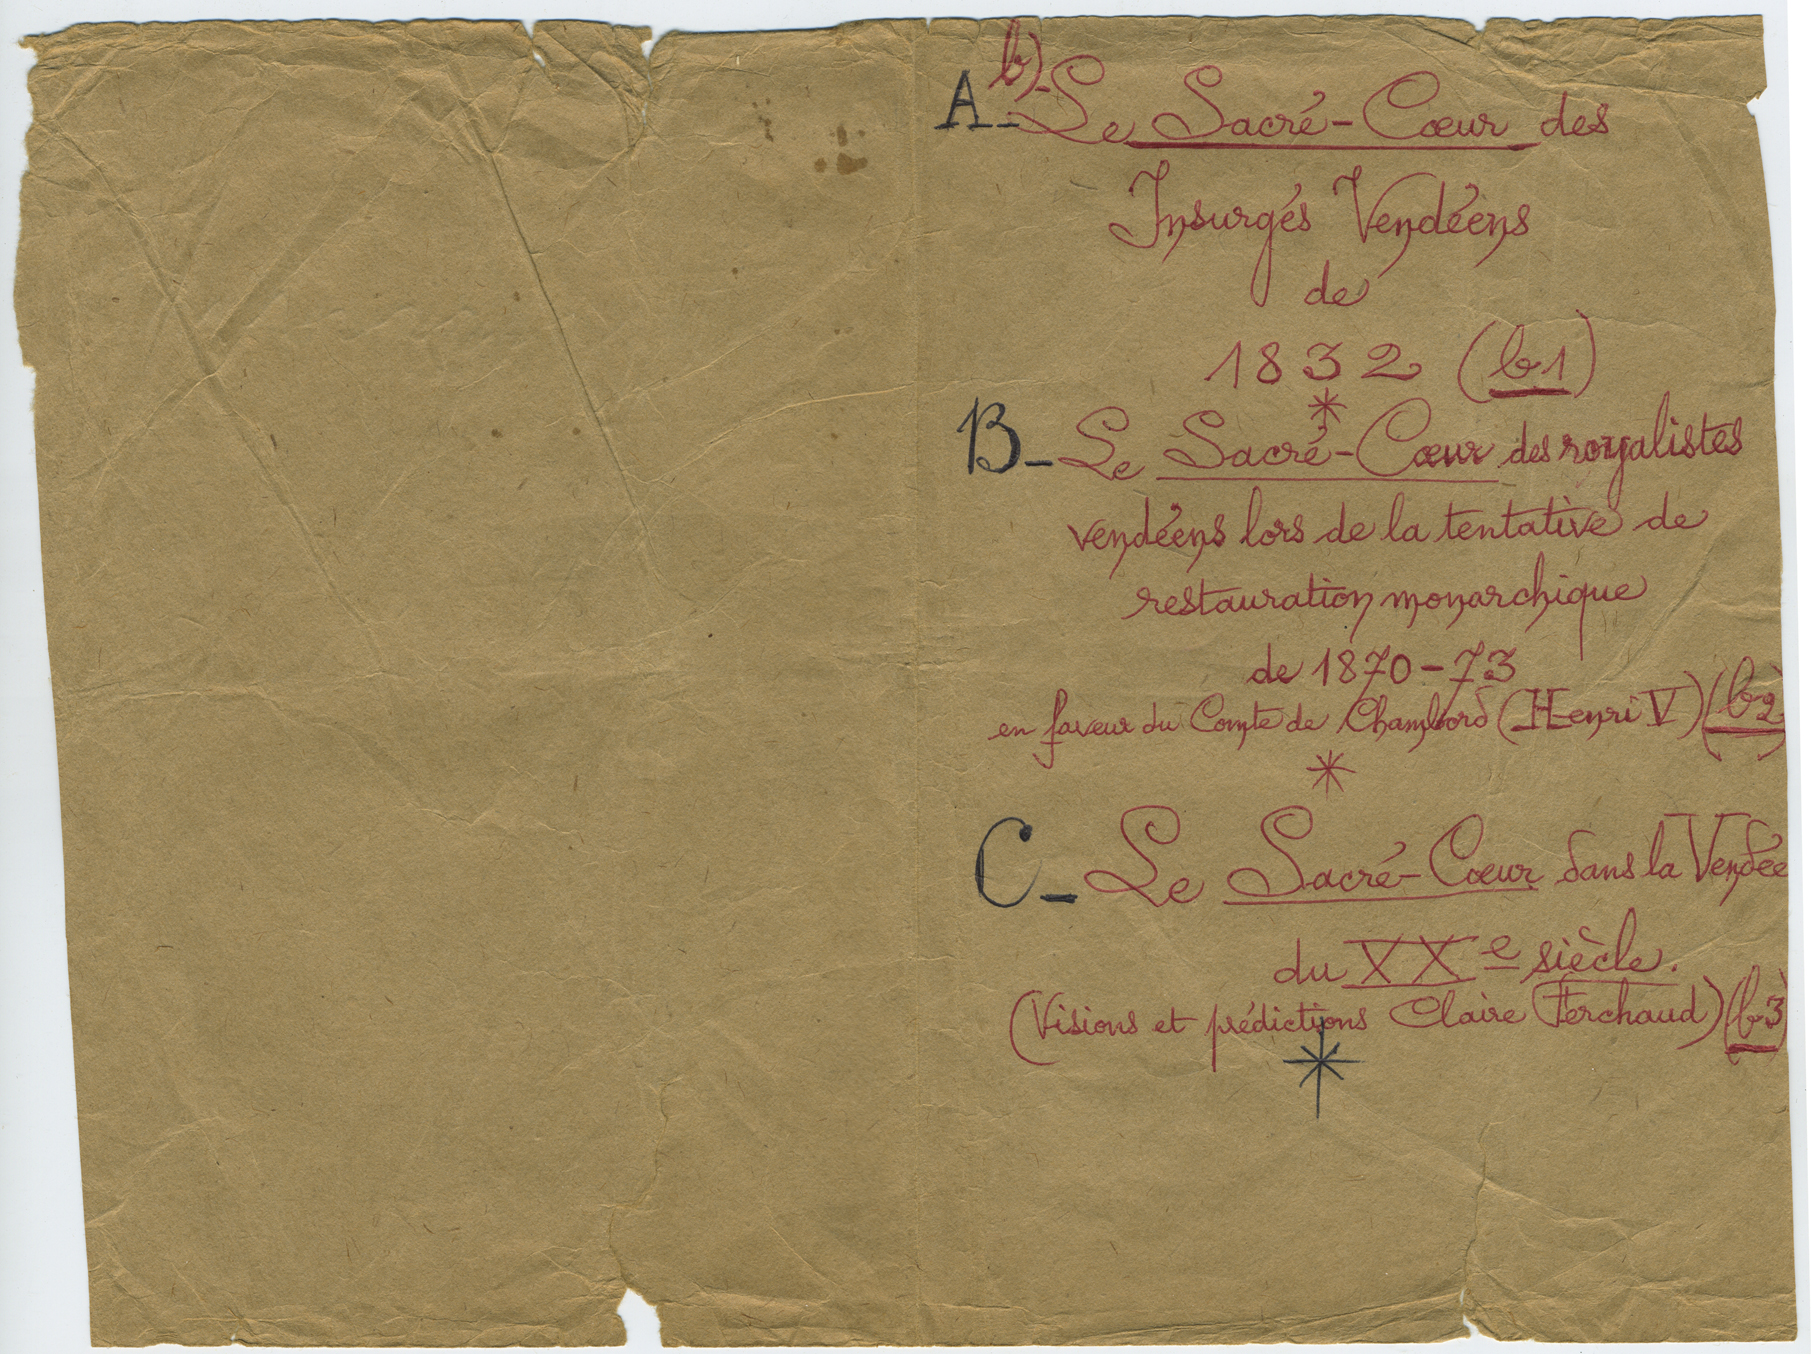 b)-
A- Le Sacré-Cœur des
Insurgés Vendéens
de
1832 (b1)
*
B- Le Sacré-Cœur des royalistes
vendéens lors de la tentative de
restauration monarchique
de 1870-73
en faveur du Comte de Chambord (Henri V) (b2)
*
C- Le Sacré-Cœur dans la Vendée
du XXe siècle.
(Visions et prédictions Claire Ferchaud) (b3)
*